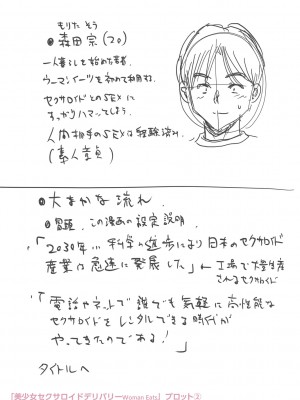 もりた そう
●森田宗(20)
一人暮らしを始めた若者。
ウーマンイーツを初めて利用する。
セクサロイドとのSEXに
すっかりハマってしまう。
人間相手のSEXは経験済み。
(素人童貞)
●大まかな流れ
●冒頭、この漫画の設定説明。
「2030年…科学の進歩により日本のセクサロイド
産業は急速に発展した」←工場で大量生産
されるセクサロイド
「電話やネットで誰でも気軽に高性能な
セクサロイドをレンタルできる時代が
やってきたのである!
タイトルへ
「美少女セクサロイドデリバリーWoman Eats」プロット②